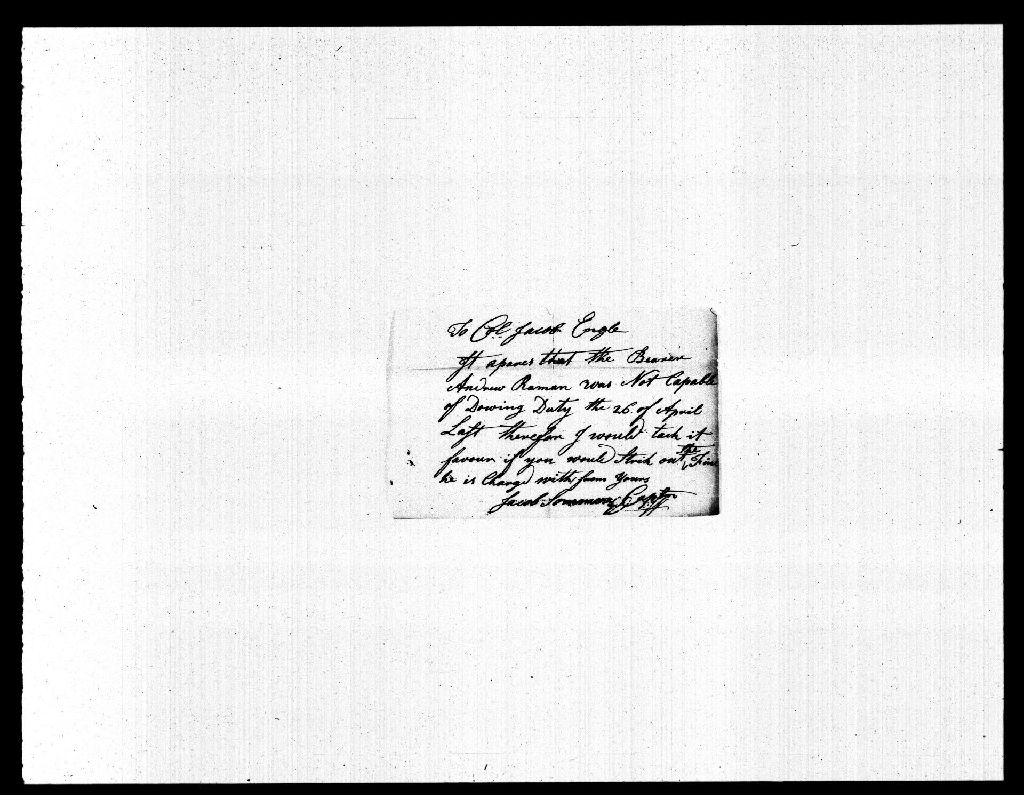 To Col. Jacob Engle
It apares that the Bearer
Andrew Raman was Not Capable
of Dowing Duty the 26 of April
Last therefor I would tack it
favour if you would Strick out the Fine
he is Chargd with from yours
Jacob Capt